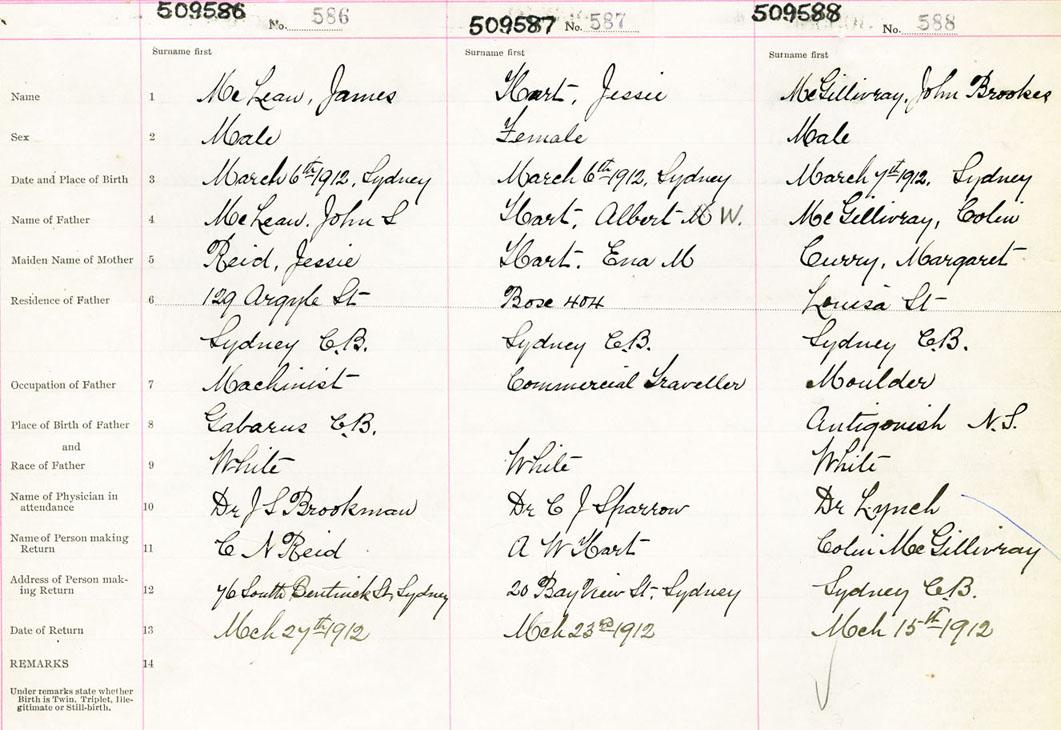 509586 No. 586 509587 No. 587 509588 No. 588
Surname first Surname first Surname first
Name 1 McLean, James Hart, Jessie McGillivray, John Brookes
Sex 2 Male Female Male
Date and Place of Birth 3 March 6th 1912, Sydney March 6th 1912, Sydney March 7th 1912, Sydney
Name of Father 4 McLean, John S Hart, Albert W. McGillivray, Colin
Maiden Name of Mother 5 Reid, Jessie Hart, Ena M Curry, Margaret
Residence of Father 6 129 Argyle St Bose 404 Louisa St
Sydney C.B. Sydney C.B. Sydney C.B.
Occupation of Father 7 Machinist Commercial Traveller Moulder
Place of Birth of Father 8 Gabarus C.B. Antigonish N.S.
and
Race of Father 9 White White White
Name of Physician in
attendance 10 Dr J S Brookman Dr C J Sparrow Dr Lynch
Name of Person making
Return 11 C N Reid A W Hart Colin McGillivray
Address of Person mak-
ing Return 12 76 South Bentinck St, Sydney 20 Bay View St, Sydney Sydney C.B.
Date of Return 13 Mch 27th 1912 Mch 23rd 1912 Mch 15th 1912
REMARKS 14
Under remarks state whether
Birth is Twin, Triplet, Ille-
gitimate or Still-birth.